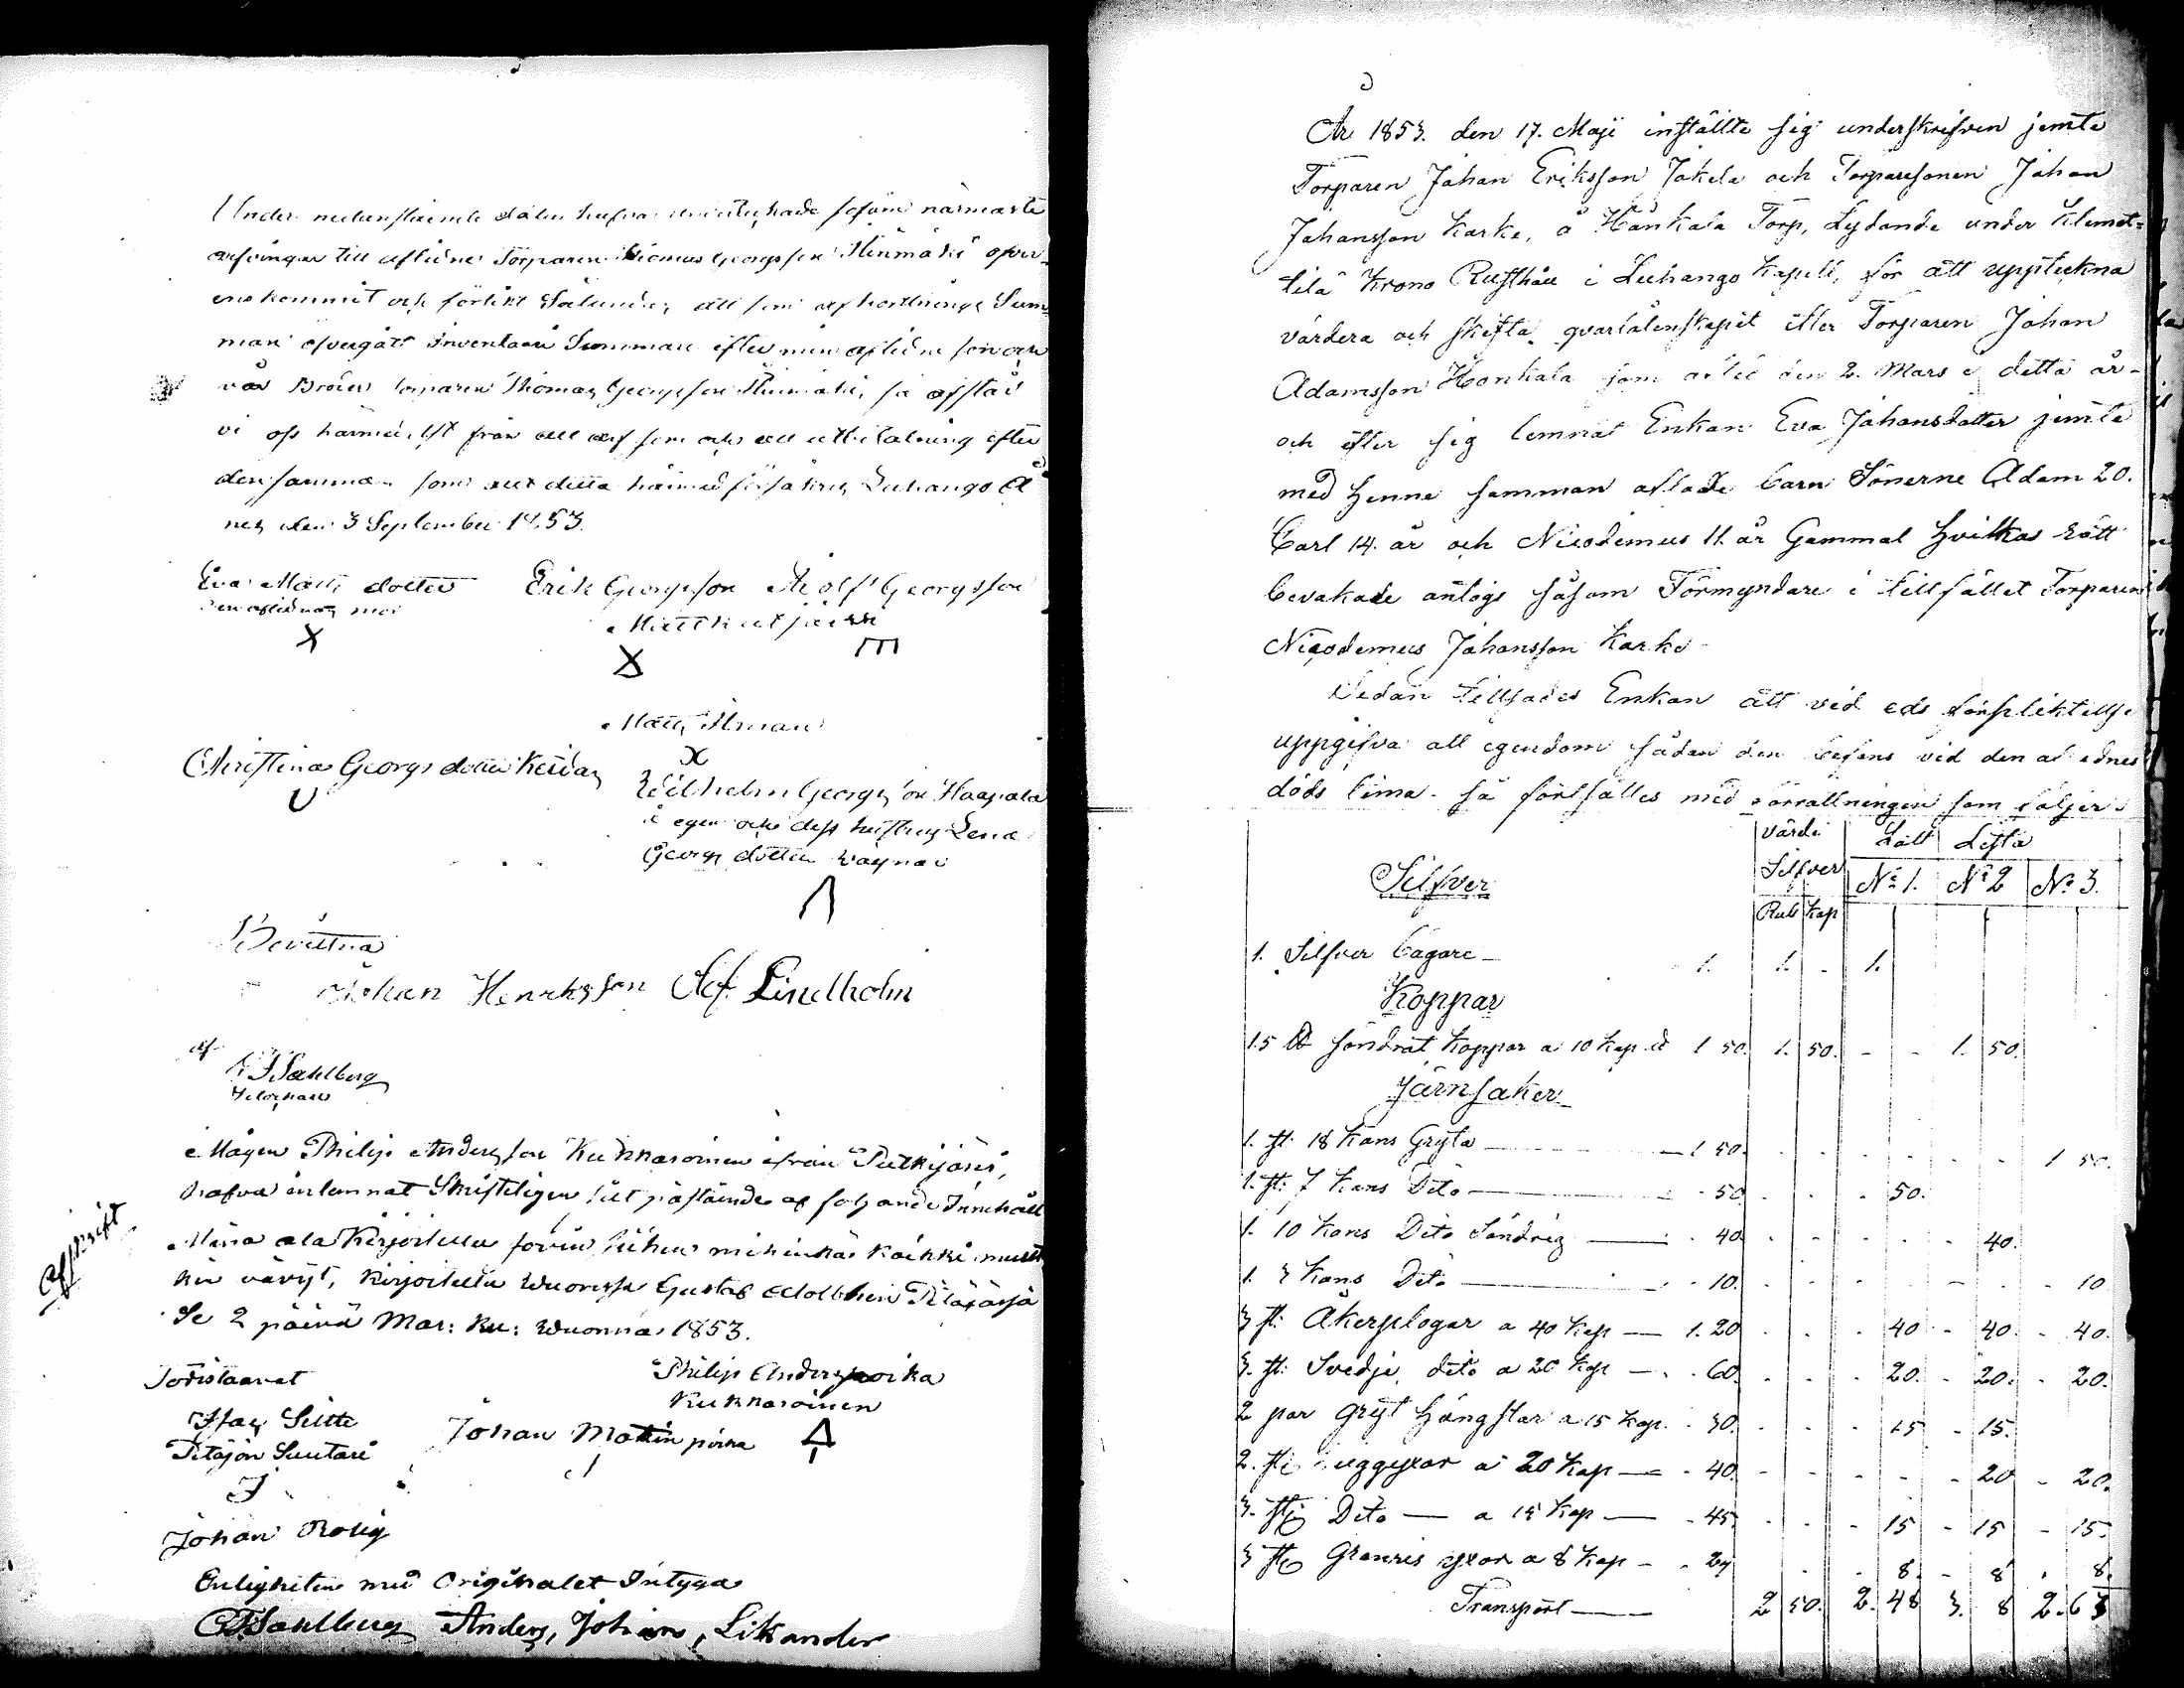 Under nedanstående dato hafva såsom närmaste
arfvingar till aflidne Torparen Georgsson öfver-
enskommit och förlikt Sålunda, att som Sum-
man öfvergått Inventarii Summan efter min aflidne son och
vår Broder torparen Thomas Georgsson så afstå
vi oss härmedelst från all arf som och all utbetalning efter
densamma som till detta härmed försäkras Luhango Å
nes den 3 September 1853.
Eva Matts dotter Erik Georgsson Adolf Georgsson
den aflidnas mor
X X
Matts
X
Christina Georgs dotter
Wilhelm Georgsson Haapala
å egen och dess hustrus Lena
Georgs dotter vägnar
Bevittna
Johan Henriksson Olof Lindholm
af
Sahlberg
Mågen Philip Andersson Kukkaroinen ifrån Putkijärvi,
hafva inlemnat Skrifteligen sitt påstående af följande Innehåll
Minä ala Kirjoitettu sovin siihen mihinkä kaikki muut
kin , Kirjoitettu Wuoressa Gustaf Adolphin Pitäjässä
Se 2 päivä Mar: Ku: Wuonna 1853.
Afskrift
Todistaavat Philip Anders poika
Kukkaroinen
Johan Matin poika
Pitäjän Suutari
Johan Rolig
Enligheten med Originalet Intyga
Sahlberg Anders, Johan, Sikander
År 1853. den 17. Maji inställte sig underskrifven jemte
Torparen Johan Eriksson Jokela och Torparesonen Johan
Johansson Karke, å Hånkala Torp, Lydande under Klemet-
tilä Krono Rusthåll i Luhango Kapell, för att uppteckna
värdera och skifta qvarlåtenskapet efter Torparen Johan
Adamsson Honkala som aflid den 2. Mars i detta år-
och efter sig lemnat Enkan Eva Johansdotter jemte
med henne samman aflade barn Sönerne Adam 20.
Carl 14. år och Nicodemus 11. år Gammal hvilkas rätt
bevakade antogs såsom Förmyndare i tillfället Torparen
Nicodemus Johansson Karke
Sedan tillsades Enkan att vid eds förpliktelse
uppgifva all egendom sådan den befans vid den aflidnes
döds tima. så fortsattes med förrättningen som följer.
Värde Lått Lista
Silfver Silfver No 1. No 2 No 3.
Rub Kop
1. Silfver bägare - 1. 1. - 1.
Koppar
1.5 ℔ söndrat Koppar a 10 Kop ℔ 1 50. 1. 50. - - 1. 50.
Järnsaker
1. st: 18 Kans Gryta — 1 50. 1 50.
1. st: 7 Kans Dito — 50 50.
1. 10 Kans Dito Söndrig — 40 40.
1. 3 Kans Dito — 10. 10
3 st: Åkerplogar a 40 Kop — 1.20 40 - 40. - 40.
3. st: Svedje dito a 20 Kop — 60. 20. - 20. - 20.
2 par Gryt hängslar a 15 Kop. 30. 15 - 15.
2. st: huggyxor a 20 Kop — 40. 20 - 20.
3. st: Dito — a 15 Kop — 45 15 - 15 - 15.
3 st: Granris yxor a 8 Kop - 24 8. - 8 . 8.
Transport — 2 50. 2. 48 3. 8 2. 63